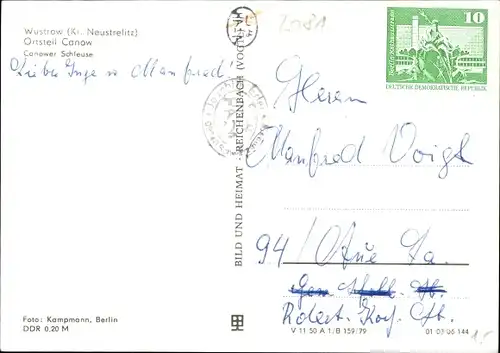 Wustrow (Kr. Neustrelitz)
Ortsteil Canow
Canower Schleuse
Liebe Inge u Manfred!
BILD UND HEIMAT · REICHENBACH (VOGTL)
10
DEUTSCHE DEMOKRATISCHE REPUBLIK
Herrn
Manfred Voigt
94/ Aue Sa.
Robert-Koch-Str.
Foto: Kampmann, Berlin
DDR 0,20 M
V 11 50 A 1/B 159/79
01 03 06 144